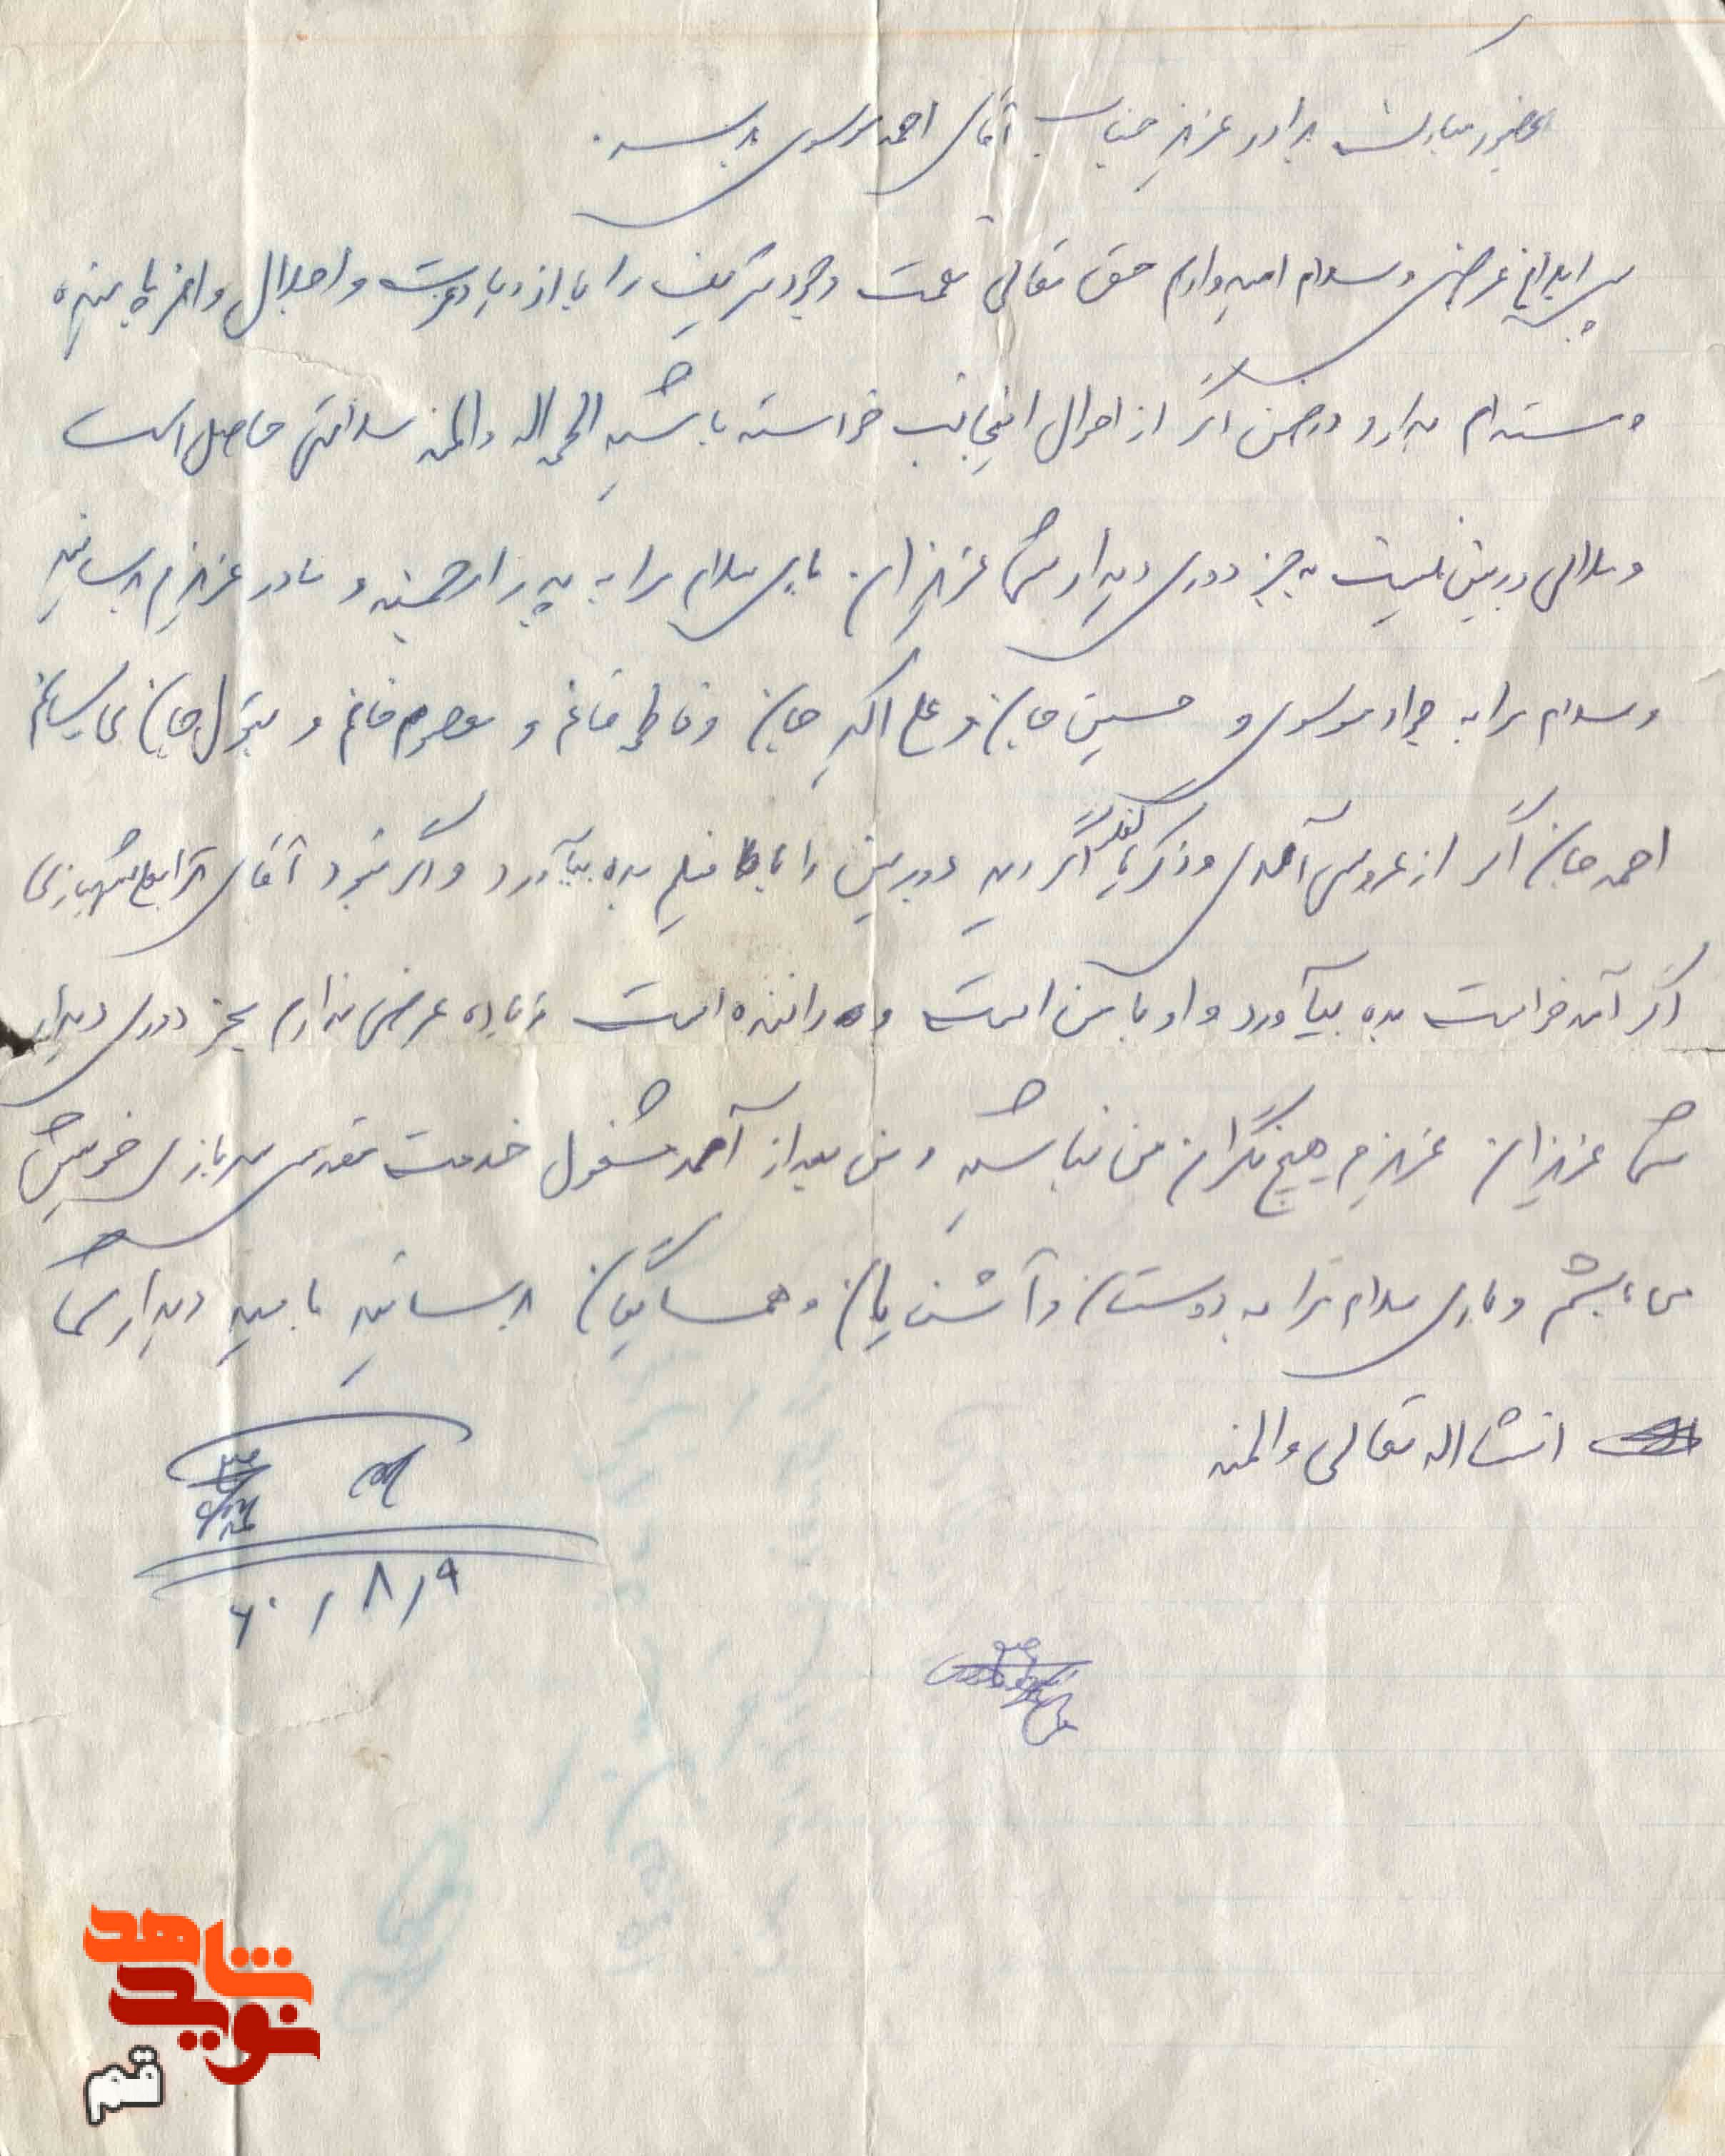 بحضور مبارک برادر عزیز جناب آقای احمد موسوی برسد.
پس از ابلاغ عرض سلام امیدوارم حق تعالی نعمت وجود شریف را با ازدیاد عزت و اجلال وافر پاینده
و مستدام بدارد و در ضمن اگر از احوال اینجانب خواسته باشید الحمد اله والمنه سلامتی حاصل است
و ملالی در بین نیست به جز دوری دیدار شما عزیزان باری سلام مرا به پدر ارجمند و مادر عزیزم برسانید
و سلام مرا به جواد موسوی و حسین جان و علی اکبر جان و فاطمه خانم و معصومه خانم و بتول جان می‌رسانم
احمد جان اگر از عروسی آمدی و زکریا اگر دید دوربین را با فیلم بده بیآورد و اگر نبرد آقای
اگر آمد خواست بده بیآورد و او با من است و راننده است زیاده عرضی ندارم بجز دوری دیدار
شما عزیزان عزیزم هیچ نگران من نباشید و من بعد از آمد مشغول خدمت مقدس سربازی خویش
می باشم و باری سلام مرا به دوستان و آشنایان و همسایگان برسانید با امید دیدار شما
انشااله تعالی والمنه
۶۰/۸/۹
شاهد
نوید
قم